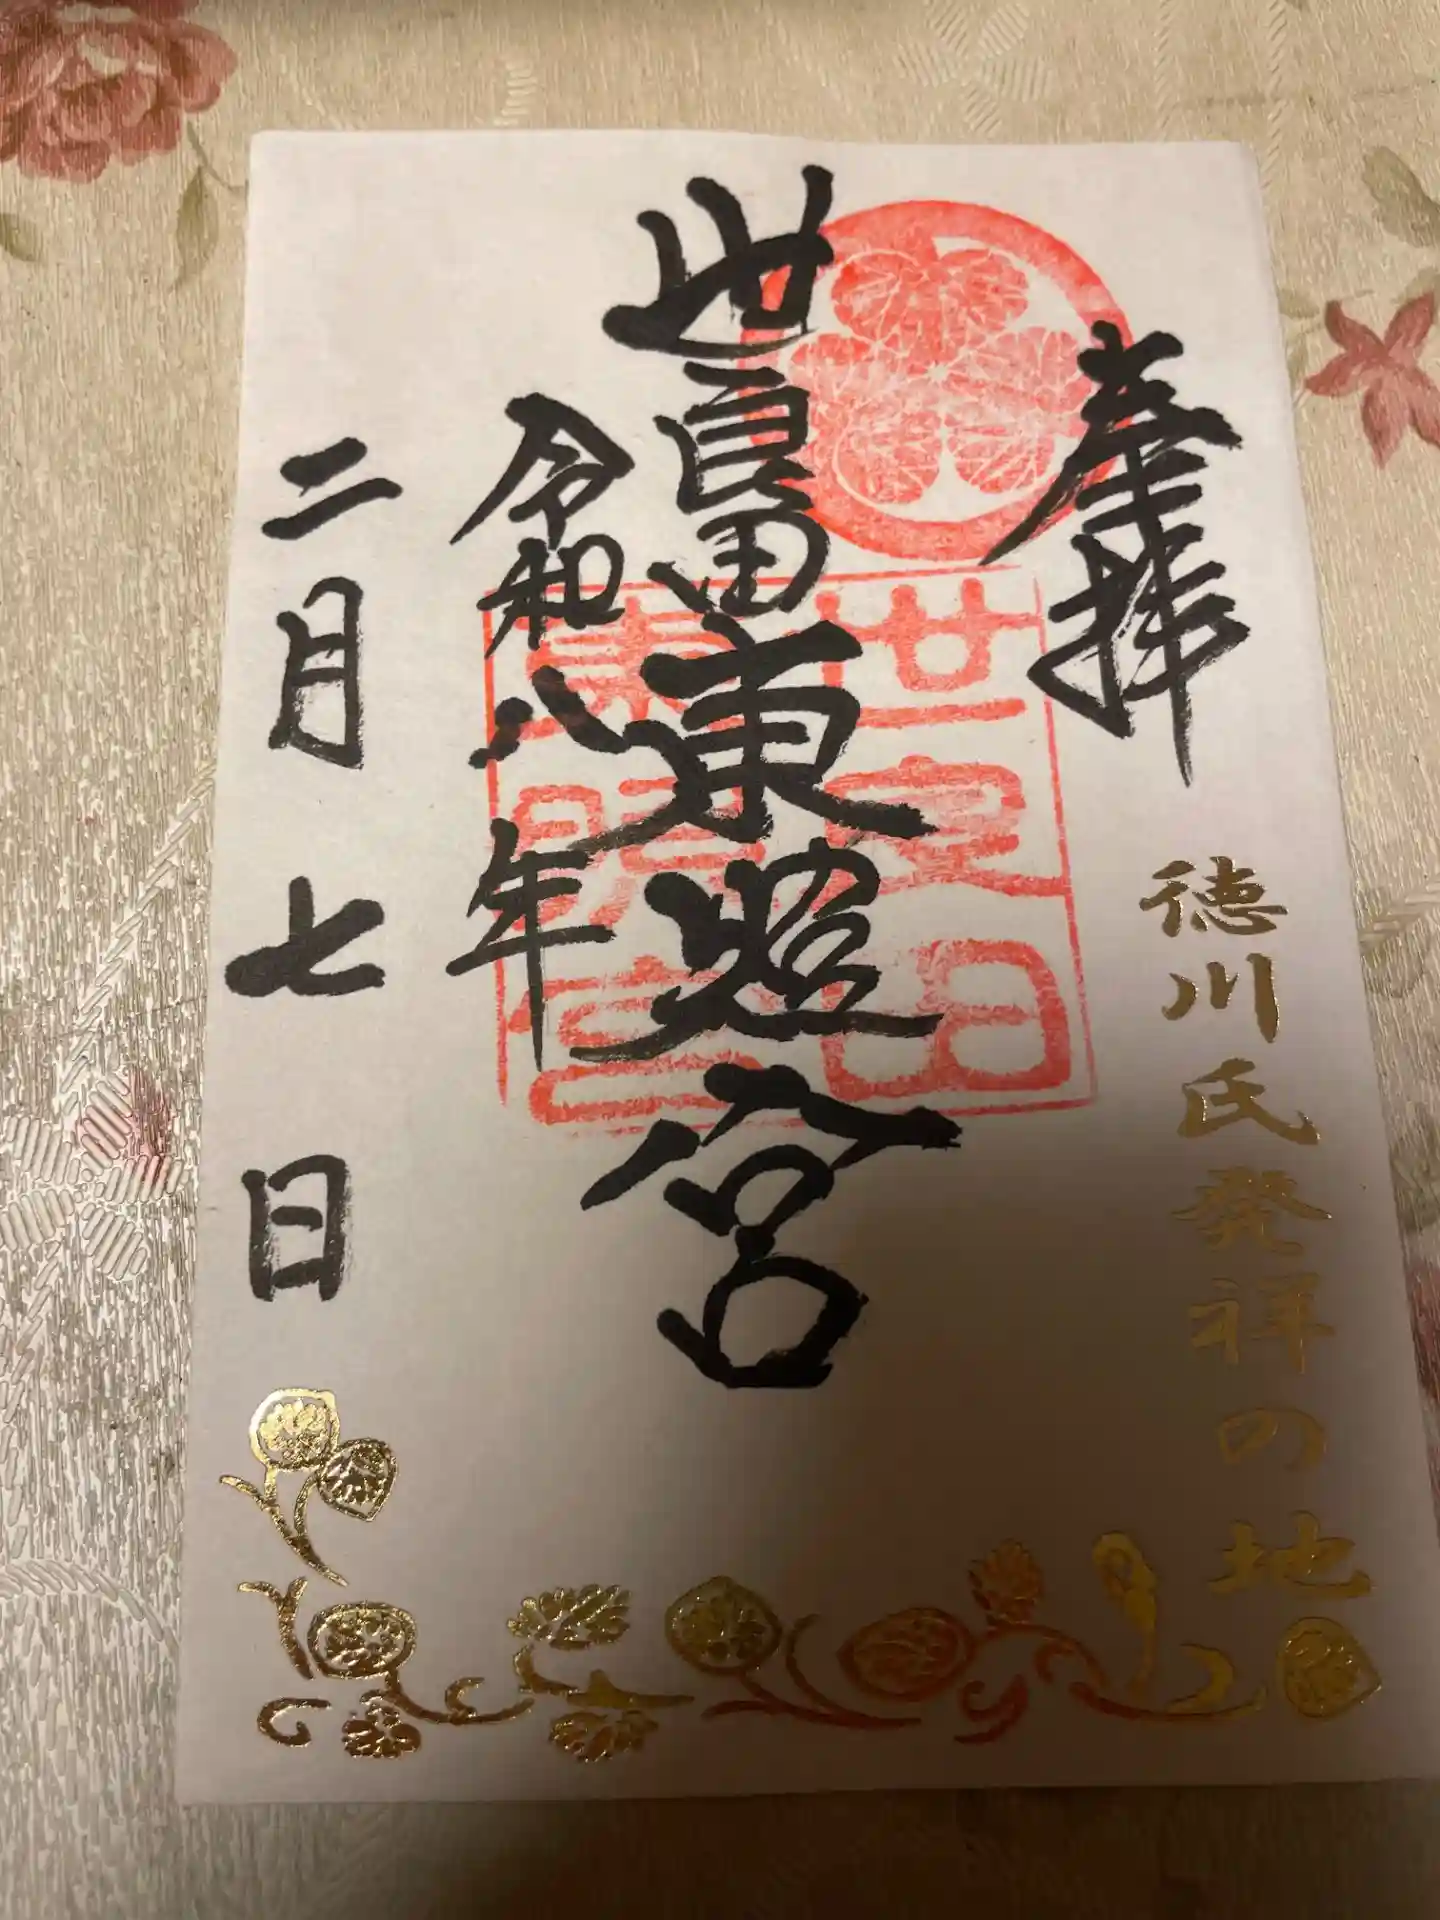 奉拝
徳川氏発祥の地
世良田東照宮
令和八年
二月七日
世良田
東照宮